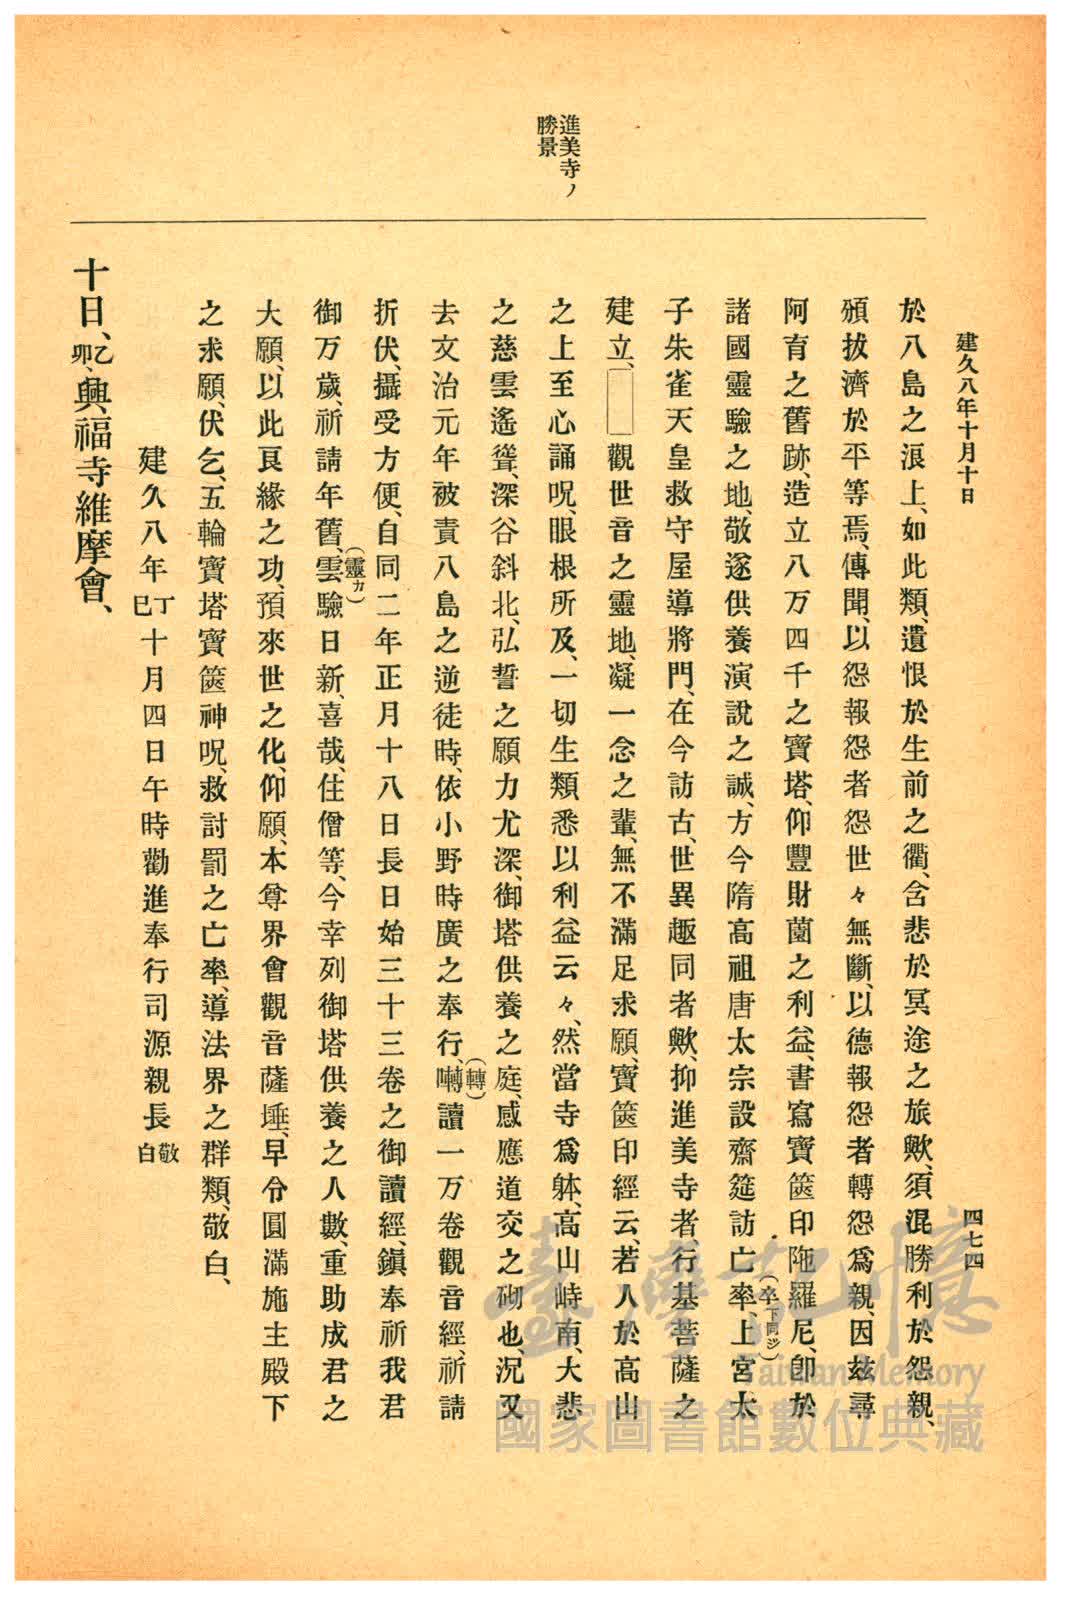 建久八年十月十日
四七四
進美寺ノ
勝景
於八島之浪上、如此類、遺恨於生前之衢、含悲於冥途之旅歟、須混勝利於怨親、
頒拔濟於平等焉、傳聞、以怨報怨者怨世々無斷、以德報怨者轉怨爲親、因玆尋
阿育之舊跡、造立八万四千之寶塔、仰豐財薗之利益、書寫寶篋印陁羅尼、卽於
諸國靈驗之地、敬遂供養演說之誠、方今隋高祖唐太宗設齋筵訪亡率、上宮太
(卒、下同ジ)
子朱雀天皇救守屋導將門、在今訪古、世異趣同者歟、抑進美寺者、行基菩薩之
建立、觀世音之靈地、凝一念之輩、無不滿足求願、寶篋印經云、若人於高山
之上至心誦呪、眼根所及、一切生類悉以利益云々、然當寺爲躰、高山峙南、大悲
之慈雲遙聳、深谷斜北、弘誓之願力尤深、御塔供養之庭、感應道交之砌也、況又
去文治元年被責八島之逆徒時、依小野時廣之奉行、囀讀一万卷觀音經、祈請
(轉)
折伏、攝受方便、自同二年正月十八日長日始三十三卷之御讀經、鎭奉祈我君
御万歲、祈請年舊、雲驗日新、喜哉、住僧等、今幸列御塔供養之人數、重助成君之
(靈カ)
大願、以此良緣之功、預來世之化、仰願、本尊界會觀音薩埵、早令圓滿施主殿下
之求願、伏乞、五輪寶塔寶篋神呪、救討罰之亡率、導法界之群類、敬白、
建久八年丁巳十月四日午時勸進奉行司源親長敬白
十日、乙卯、興福寺維摩會、
臺灣記憶
Taiwan Memory
國家圖書館數位典藏